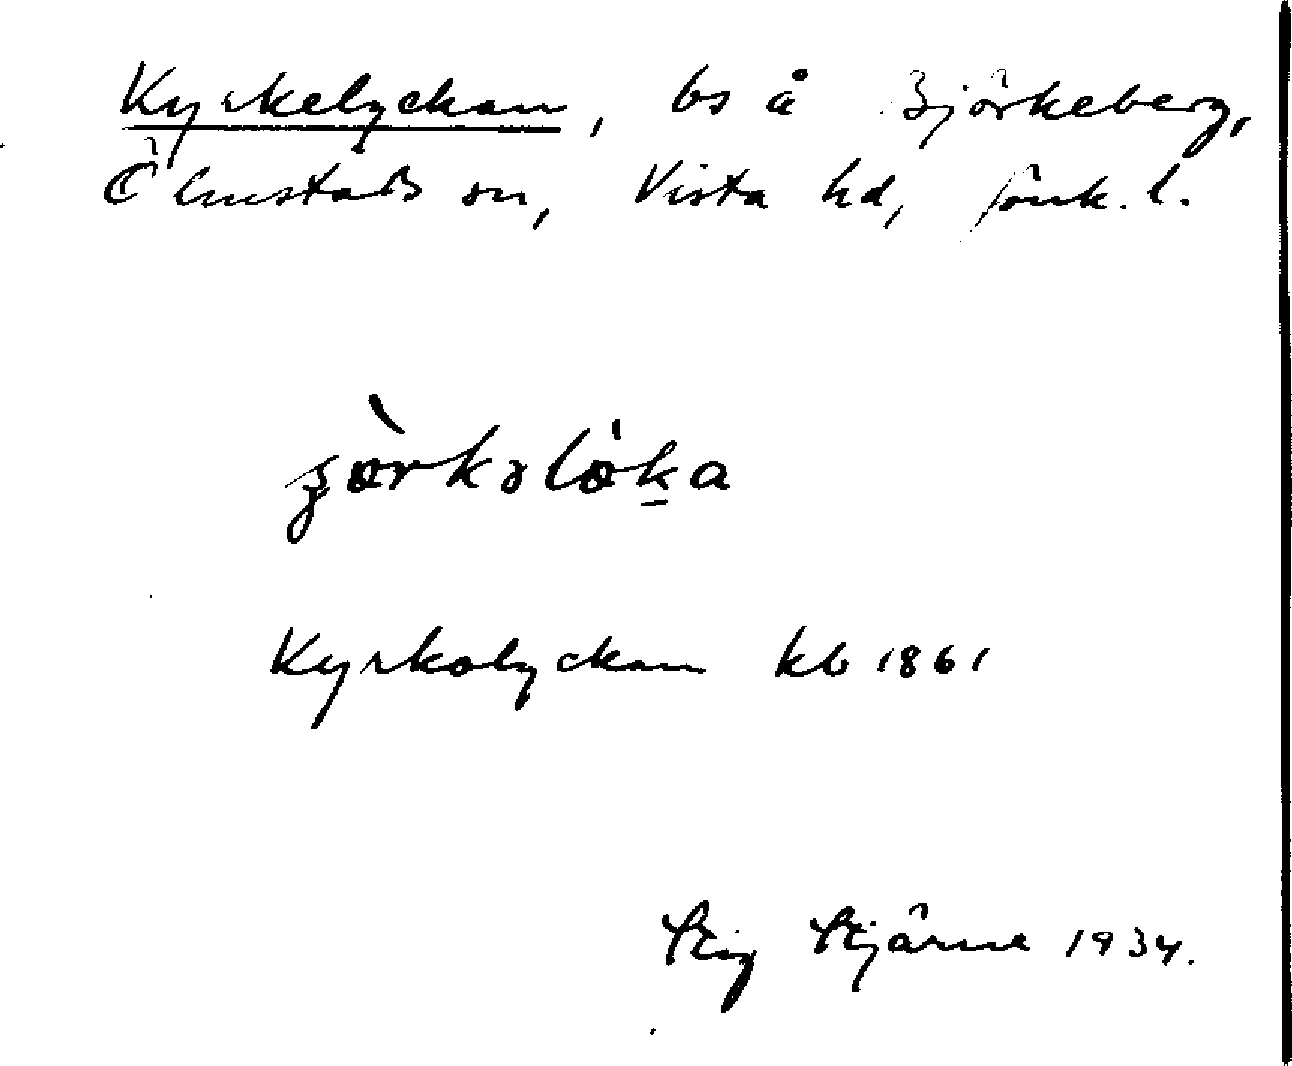 Kyrkelyckan, bs å Björkeberg,
Ölmstads sn, Vista hd, Jönk. l.
Kyrkolyckan kb 1861
Stig Stjärne 1934.